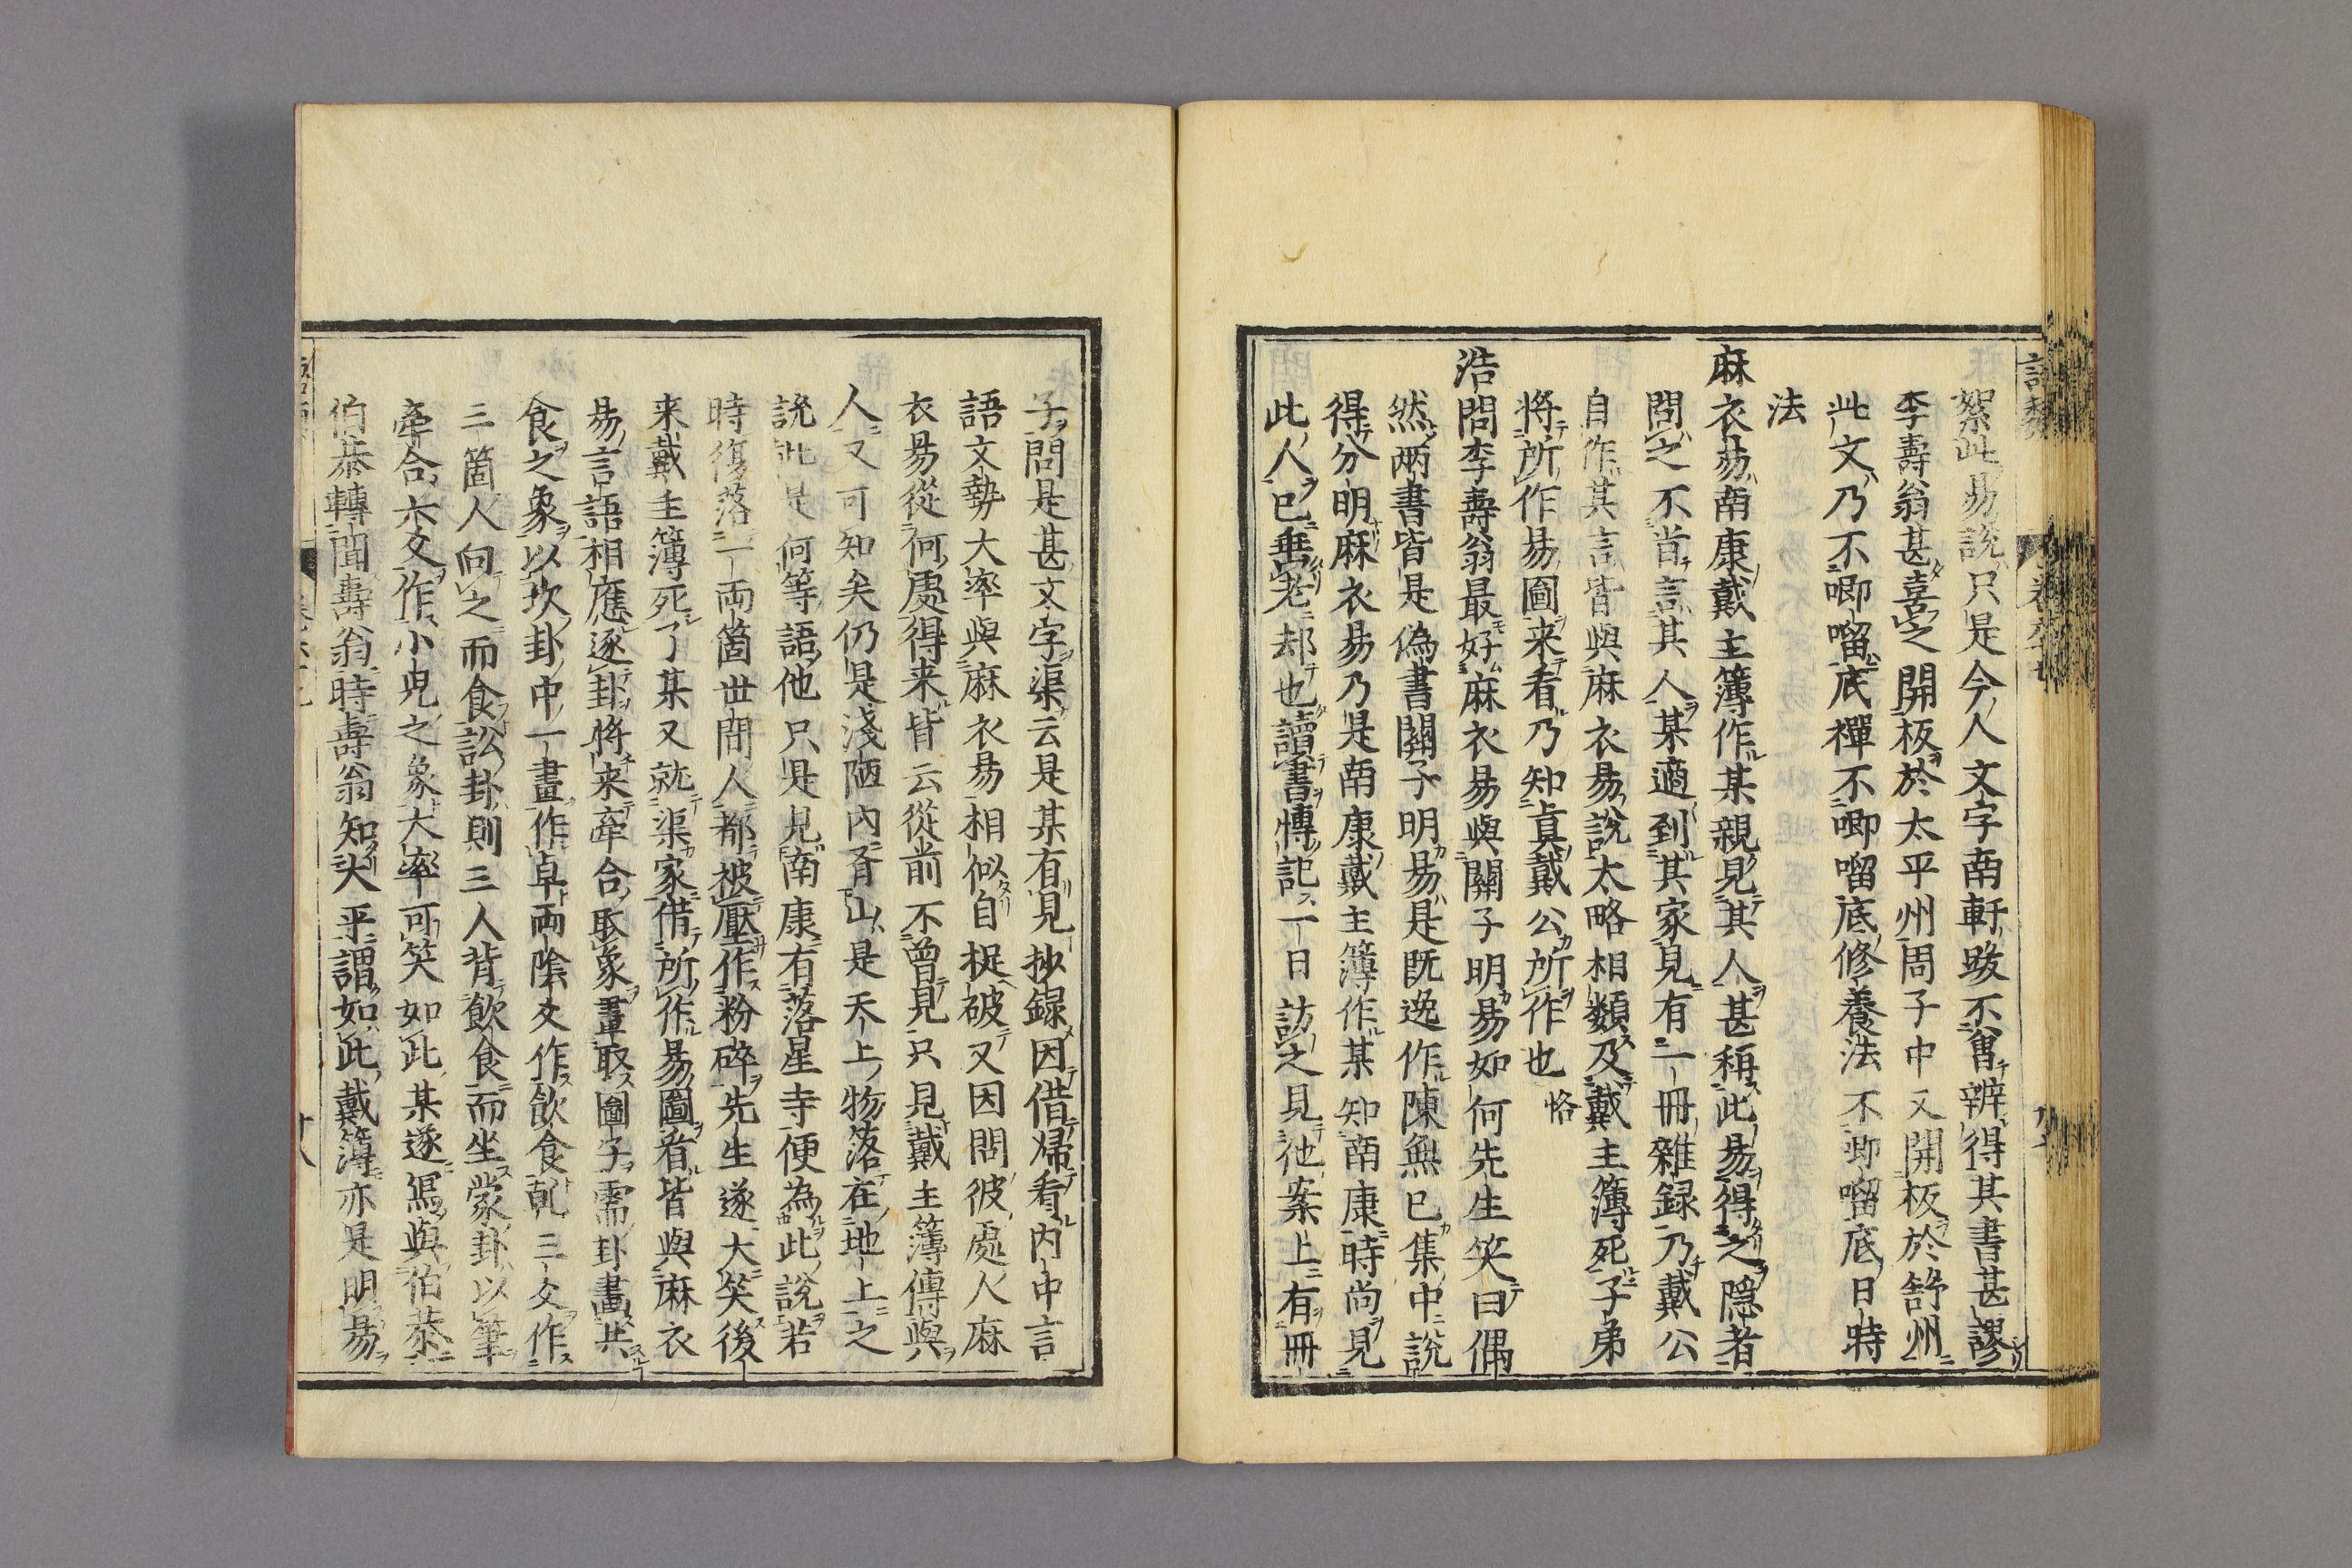 絮此易說只是今人文字南軒跋不曾辨得其書甚謬
李壽翁甚喜之開板於太平州周子中又開板於舒州
此文乃不唧㽞底禪不唧㽞底修養法不唧㽞底日時
法
麻衣易南康戴主簿作某親見其人甚稱此易得之隱者
問之不肯言其人某適到其家見有一冊雜録乃戴公
自作其言皆與麻衣易說太略相類及戴主簿死子弟
將所作易圖来看乃知眞戴公所作也 恪
浩問李壽翁最好麻衣易與關子明易如何先生笑曰偶
然兩書皆是偽書關子明易是既逸作陳無已集中說
得分明麻衣易乃是南康戴主簿作某知南康時尚見
此人已垂老却也讀書博記一日訪之見他案上有冊
子問是甚文字渠云是某有見抄録因借歸看内中言
語文勢大率與麻衣易相似自捉破又因問彼處人麻
衣易從何處得来皆云從前不曾見只見戴主簿傳與
人又可知矣仍是淺陋內有山是天上物落在地上之
說此是何等語他只是見南康有落星寺便為此說若
時復落一兩箇世間人都被壓作粉碎先生遂大笑後
来戴主簿死了某又就渠家借所作易圖看皆與麻衣
易言語相應逐卦將来牽合取象畫取圖子需卦畫共
食之象以坎卦中一畫作卓兩陰爻作飲食乾三爻作
三箇人向之而食訟卦則三人背飲食而坐蒙卦以筆
牽合六爻作小兒之象大率可笑如此某遂寫與伯恭
伯恭轉聞壽翁時壽翁知太平謂如此戴簿亦是明易